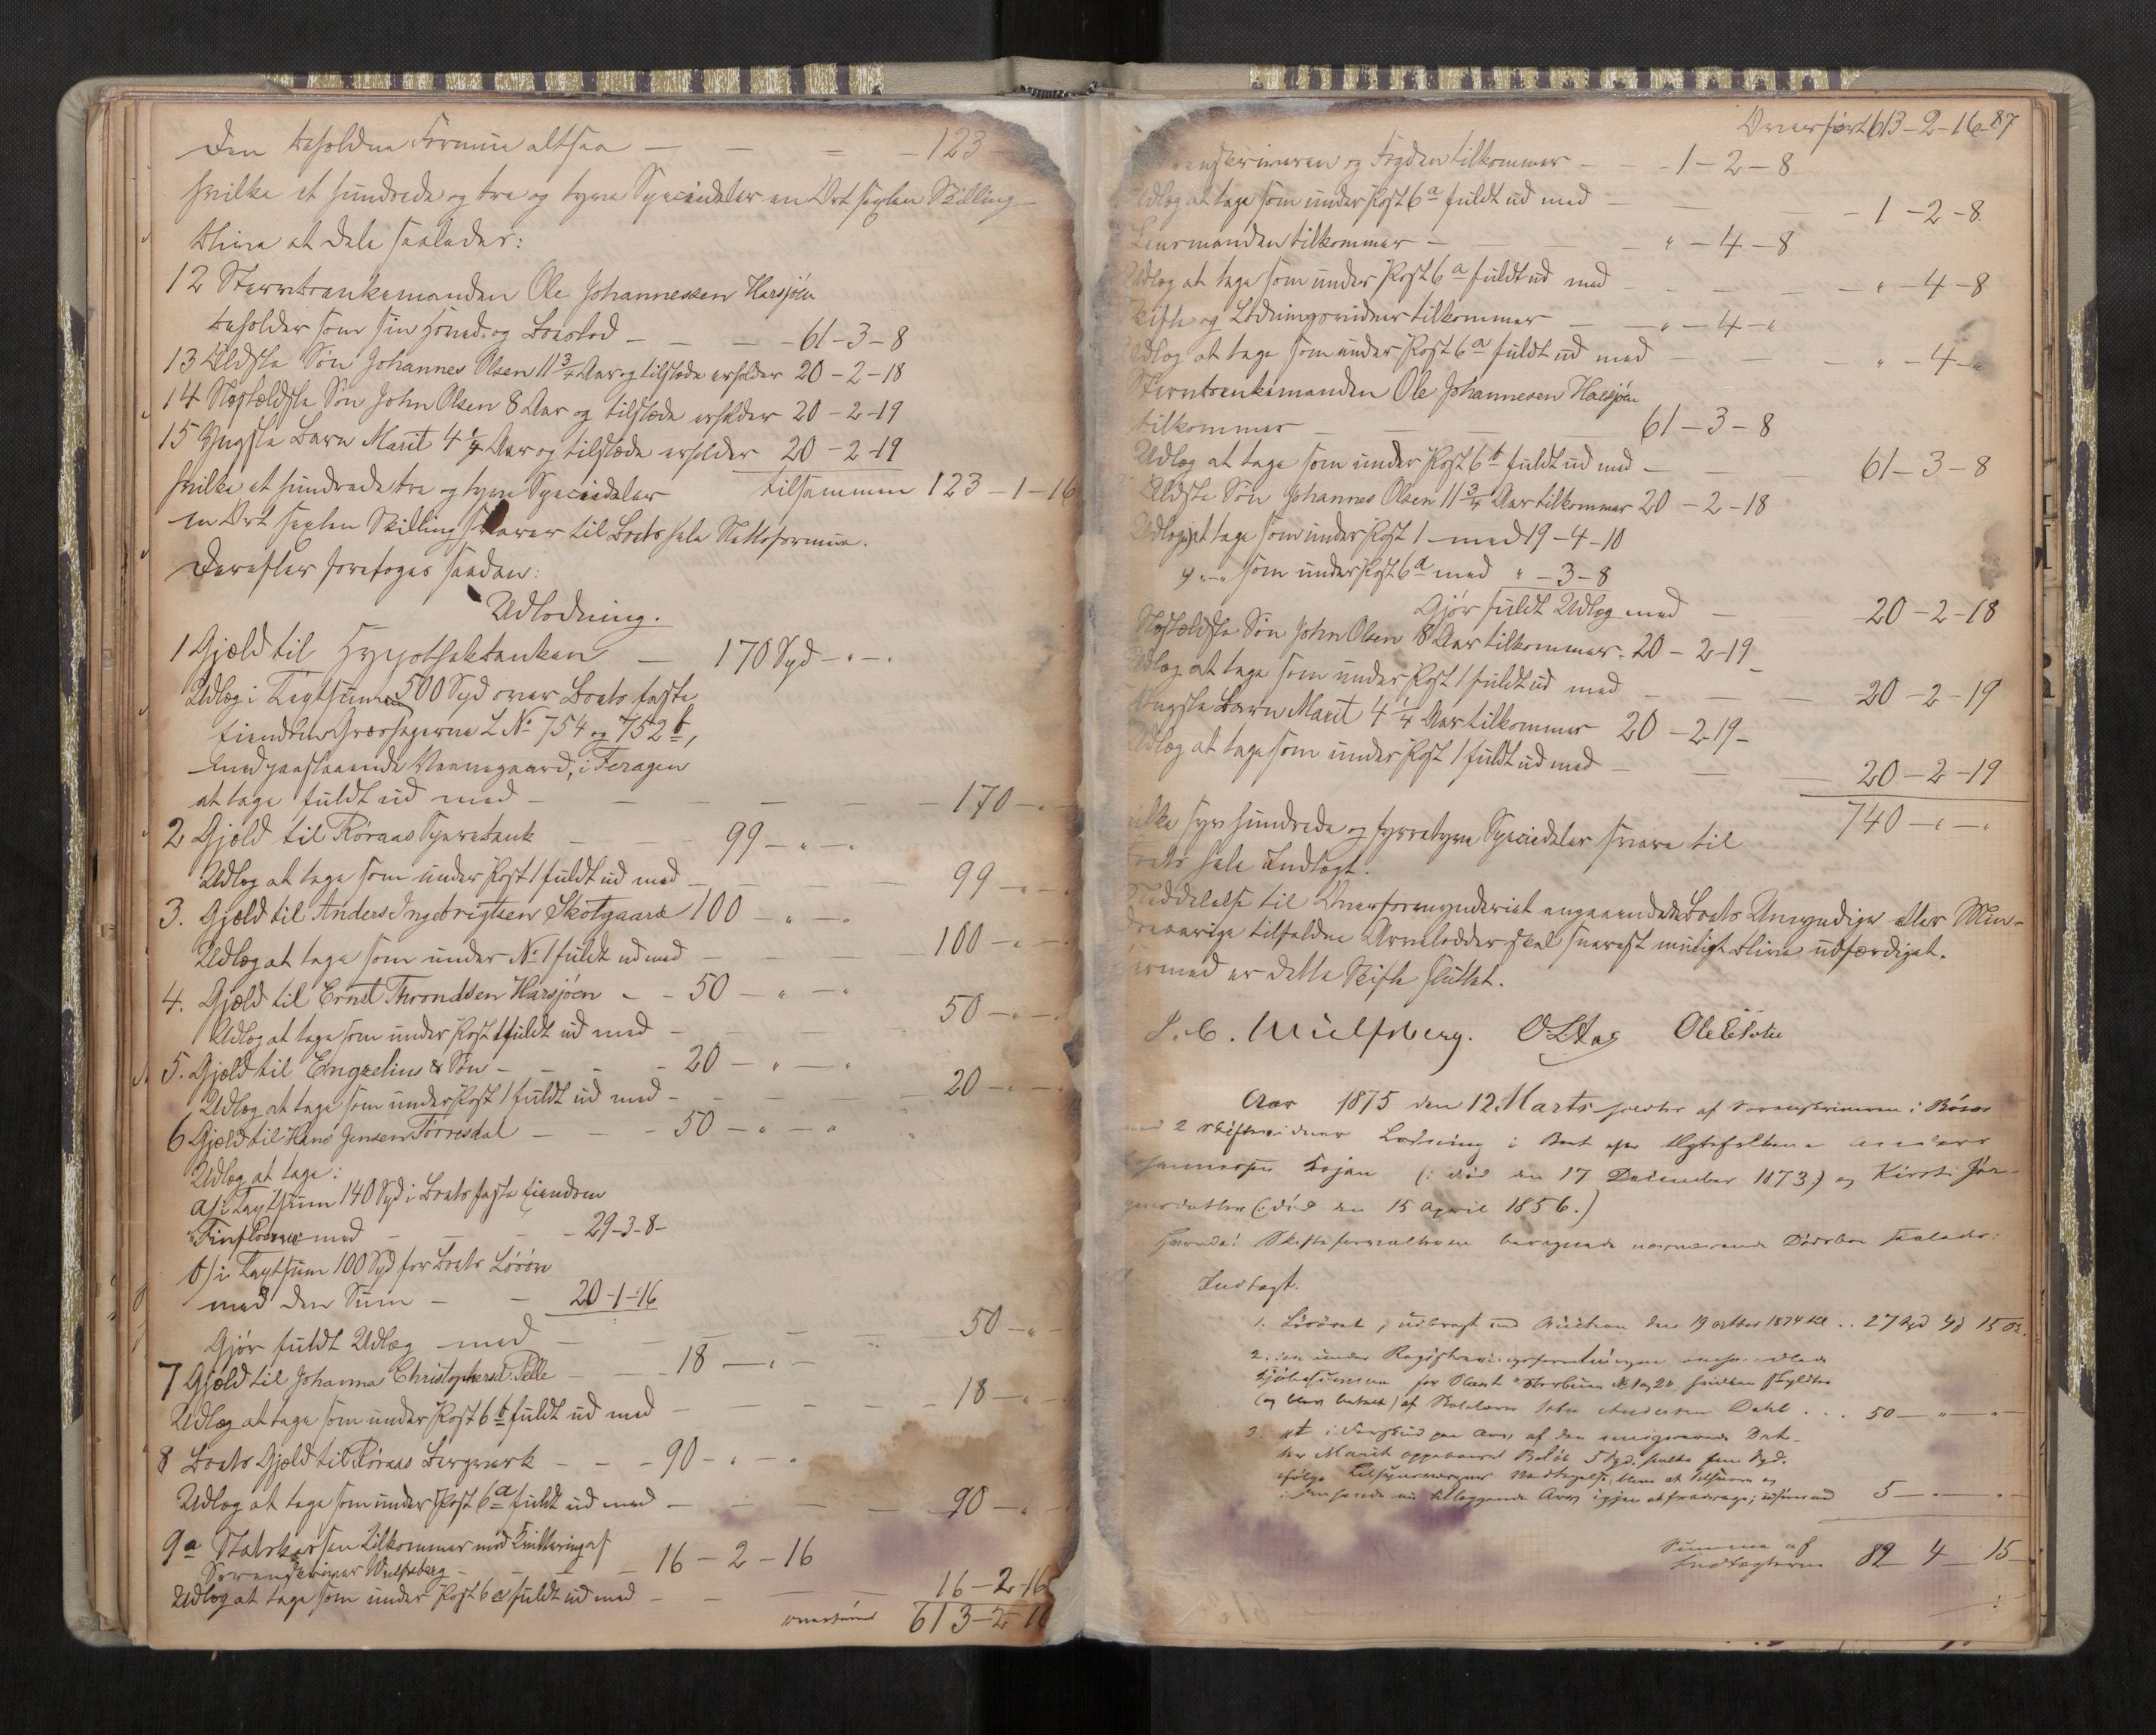 Den beholdne Formue altsaa — — — 123
hvilke et hundrede og tre og tyve Speciedaler en Ort sexten Skilling
blive at dele saaledes:
12 Sterbboenkemanden Ole Johannessen Harsjøen
beholder som sin Hoved- og Boeslod — — — 61-3-8
13 Ældste Søn Johannes Olsen 11 3/4 Aar og tilstede erholder 20-2-18
14 Næstældste Søn John Olsen 8 Aar og tilstede erholder 20-2-19
15 Yngste Barn Marit 4 1/4 Aar og tilstede erholder 20-2-19
hvilke et hundrede tre og tyve Speciedaler tilsammen 123-1-16
en Ort sexten Skilling svarer til Boets hele Nettoformue.
Derefter foretoges saadan:
Udlodning.
1 Gjæld til Hypothekbanken — 170 Spd - " - "
Udlæg i Taxtsummen 500 Spd over Boets faste
Eiendom Græsfagerne L No 754 og 752 b,
med paastaaende Vaanegaard, i Feragen
at tage fuldt ud med — — — 170 - " -
2 Gjæld til Røraas Sparebank — 99 - " - "
Udlæg at tage som under Post 1 fuldt ud med — 99 - " -
3. Gjæld til Anders Ingebrigtsen Skotgaard 100 - " - "
Udlæg at tage som under No 1 fuldt ud med — 100 - " -
4. Gjæld til Ernst Throndsen Harsjøen - - 50 - " - "
Udlæg at tage som under Post 1 fuldt ud med — 50 - " -
5. Gjæld til Engzelius & Søn - - - 20 - " - "
Udlæg at tage som under Post 1 fuldt ud med - 20 - " -
6 Gjæld til Hans Jensen Tørresdal — - 50 - " - "
Udlæg at tage:
a) i Taxtsum 140 Spd i Boets faste Eiendom
med — — 29-3-8-
b) i Taxtsum 100 Spd for Boets Løsøre
med den Sum — 20-1-16
Gjør fuldt Udlæg med — — 50 - " -
7 Gjæld til Johanna Christophersd. Pelle — 18 - " -
Udlæg at tage som under Post 6 b fuldt ud med — 18 - " -
8 Boets Gjæld til Røraas Bergverk - - - 90 - " - "
Udlæg at tage som under Post 6 a fuldt ud med — 90 - " -
9 a Statskassen tilkommer mod Kvittering af
Sorenskriver Wulfsberg - — 16-2-16
Udlæg at tage som under Post 6 a fuldt ud med — 16-2-16
overføres 613-2-16
Overført 613-2-16 87
renskriveren og Fogden tilkommer — — 1-2-8
Udlæg at tage som under Post 6 a fuldt ud med — 1-2-8
Lensmanden tilkommer — — " -4-8
Udlæg at tage som under Post 6 a fuldt ud med — " -4-8
Skifte og Lodningsvidner tilkommer — " -4- "
Udlæg at tage som under Post 6 a fuldt ud med — " -4- "
Sterbboenkemanden Ole Johannesen Harsjøen
tilkommer — — 61-3-8
Udlæg at tage som under Post 6 b fuldt ud med — 61-3-8
Ældste Søn Johannes Olsen 11 3/4 Aar tilkommer 20-2-18
Udlæg at tage som under Post 1 med 19-4-10
" - " som under Post 6 a med " -3-8
Gjør fuldt Udlæg med — 20-2-18
Næstældste Søn John Olsen 8 Aar tilkommer 20-2-19
Udlæg at tage som under Post 1 fuldt ud med — 20-2-19
Yngste Barn Marit 4 1/4 Aar tilkommer 20-2-19-
Udlæg at tage som under Post 1 fuldt ud med — 20-2-19
740 - " - "
hvilke syv hundrede og fyrretyve Speciedaler svare til
Boets hele Indtægt.
Meddelelse til Overformynderiet angaaende de Boets Umyndige eller Min-
dreaarige tilfaldne Arvelodder skal snarest muligt blive udfærdiget.
Hermed er dette Skifte sluttet.
J. C. Wulfsberg.
Aar 1875 den 12 Marts holdtes af Sorenskriveren i Røros
med 2 Skiftevidner Lodning i Boet efter Ægtefolkene Anders
Johannessen (: død den 17 December 1873) og Kirsti Jør-
gensdatter (: død den 15 April 1856.)
Hvorda! Skifteforvalteren beregnede nærværende Dødsbo saaledes:
Indtægt.
1. Løsøret, udbragt ved Auction den 19 octber 1874 til .. 27 Spd 4 15
2. den under Registreringsforretningen
Kjøbesummen for
(og blev betalt) af Skolelærer John Andersen Dahl . . . 50 - " - "
3. et i Forskud paa Arv af den Dat-
ter Marit oppebaaret Beløb 5 Spd.
5 - " - "
Summa af
Indtægterne 82 4 15